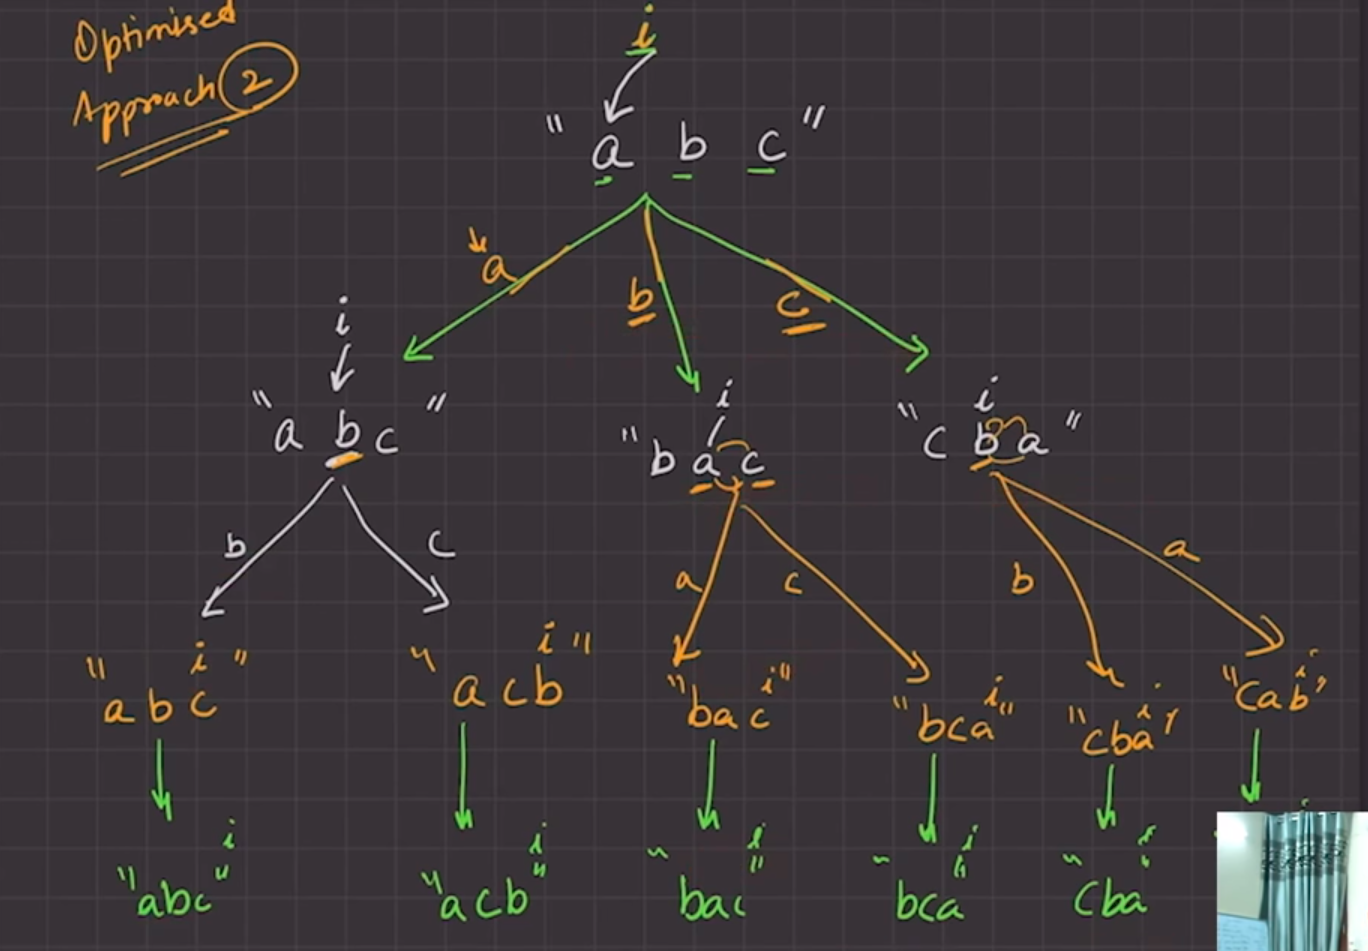 Optimised
Approach 2
i
"a b c"
a
b
c
i
"a b c"
i
"b a c"
i
"c b a"
b
c
a
c
b
a
i
"a b c"
i
"a c b"
i
"bac"
i
"bca"
i
"cba"
i
"cab"
i
"abc"
i
"acb"
i
"bac"
i
"bca"
i
"cba"